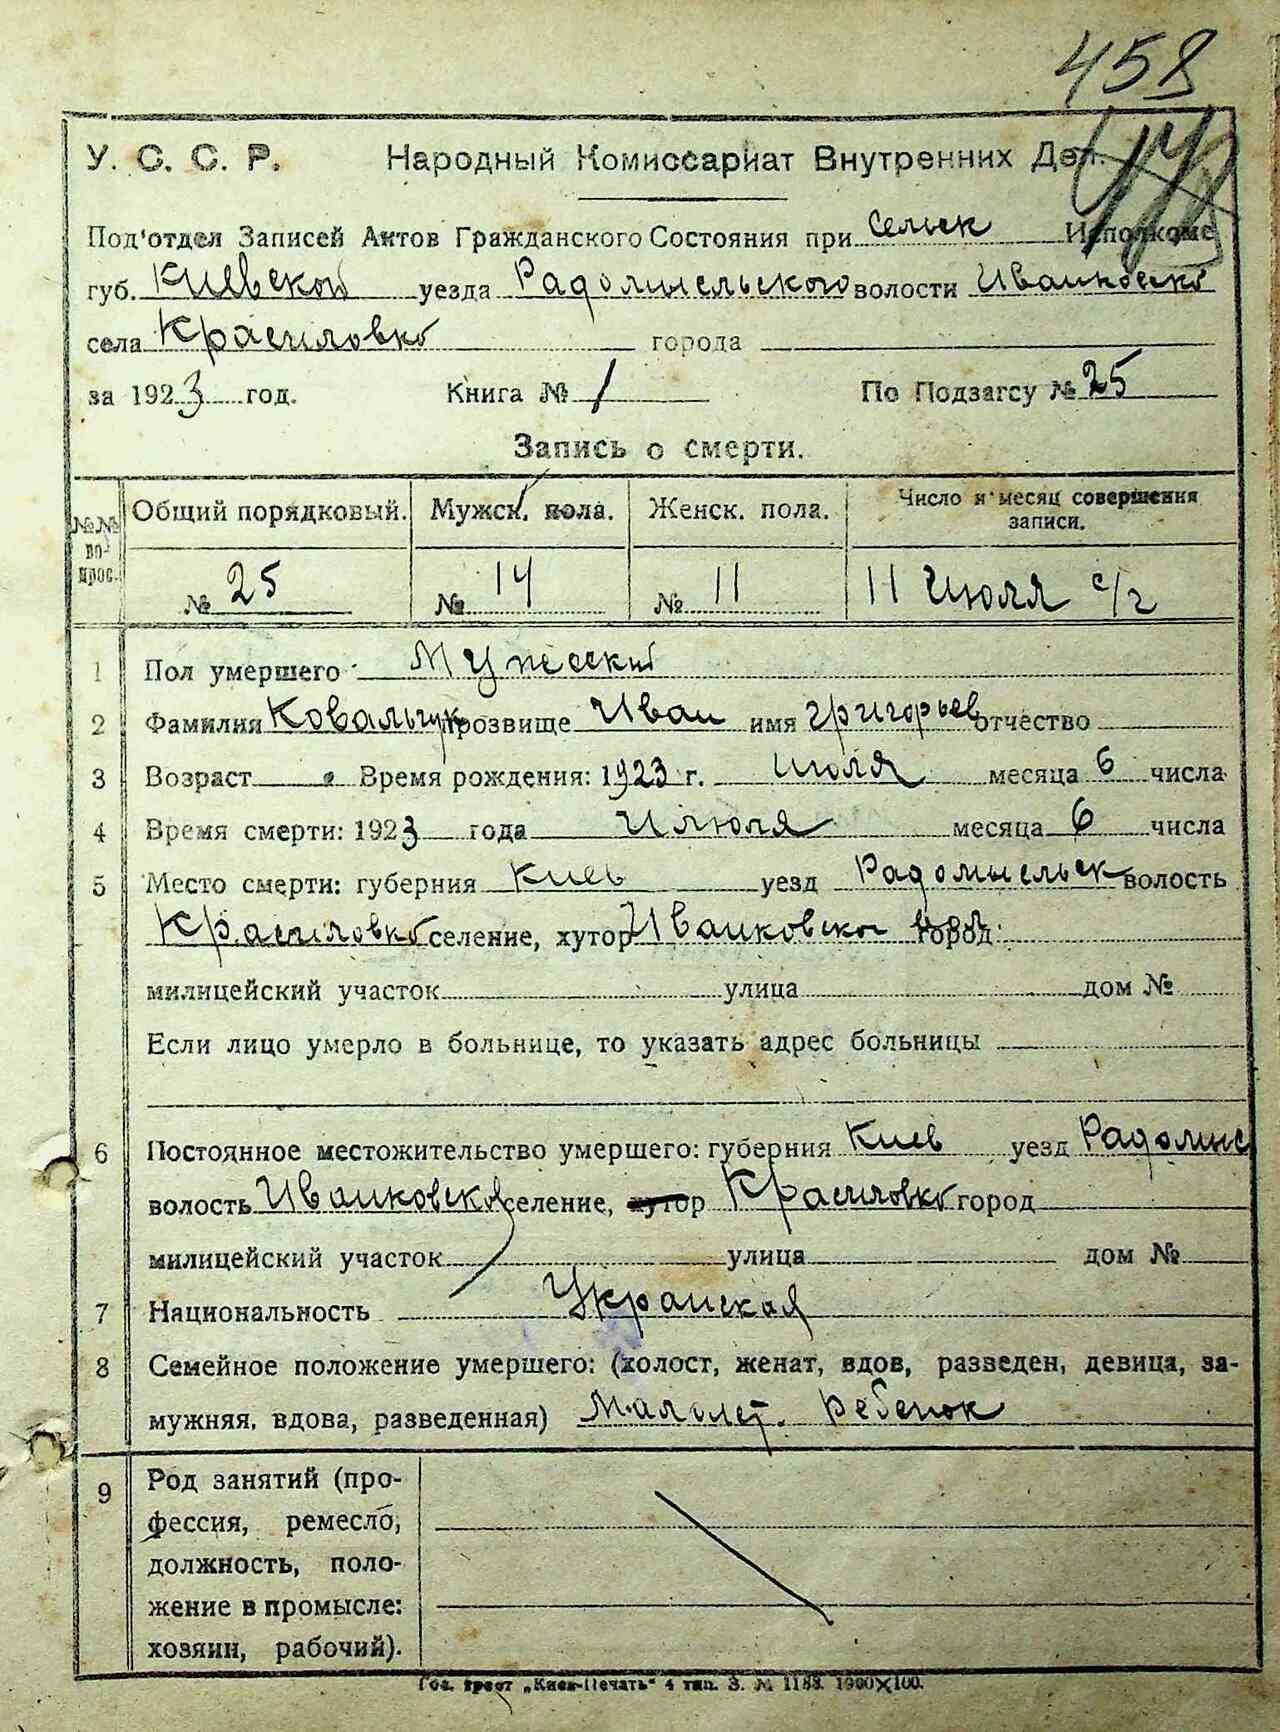 458
У. С. С. Р. Народный Комиссариат Внутренних Дел.
Под'отдел Записей Актов Гражданского Состояния при Сельск Исполкоме
губ. Киевской уезда Радомысльского волости Иванковско
села Красиловко города
за 1923 год. Книга № 1 По Подзагсу № 25
Запись о смерти.
№№ во- прос. Общий порядковый. Мужск. пола. Женск. пола. Число и месяц совершения записи.
№ 25 № 14 № 11 11 Июля с/г
1 Пол умершего Мужеский
2 Фамилия Ковальчук прозвище Иван имя Григорьев отчество
3 Возраст Время рождения: 1923 г. Июля месяца 6 числа
4 Время смерти: 1923 года Июля месяца 6 числа
5 Место смерти: губерния Киев уезд Радомысльск волость
Красиловко селение, хутор Иванковско город
милицейский участок улица дом №
Если лицо умерло в больнице, то указать адрес больницы
6 Постоянное местожительство умершего: губерния Киев уезд Радомыс
волость Иванковско селение, хутор Красиловко город
милицейский участок улица дом №
7 Национальность Украиская
8 Семейное положение умершего: (холост, женат, вдов, разведен, девица, за-
мужняя, вдова, разведенная) Малолет. Ребенок
9 Род занятий (про-
фессия, ремесло,
должность, поло-
жение в промысле:
хозяин, рабочий).
Гос. трест „Киев-Печать" 4 тип. З. № 1188. 1000×100.